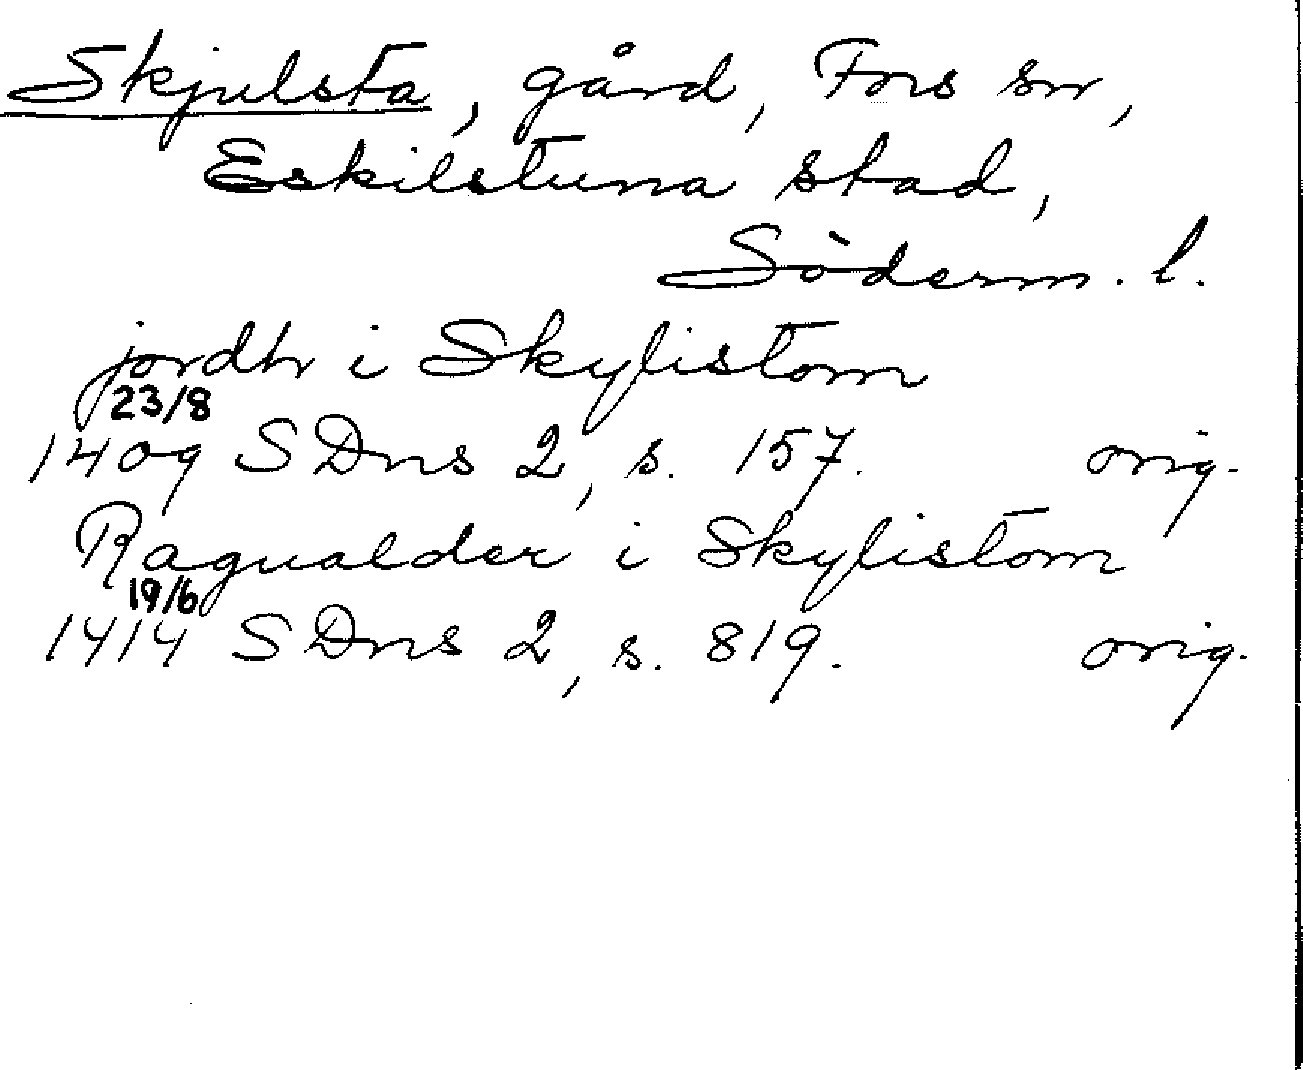 Skjulsta, gård, Fors sn,
Eskilstuna stad,
Söderm. l.
jordtr i Skylistom
23/8
1409 SDns 2, s. 157. orig.
Ragualder i Skylistom
19/6
1414 SDns 2, s. 819. orig.